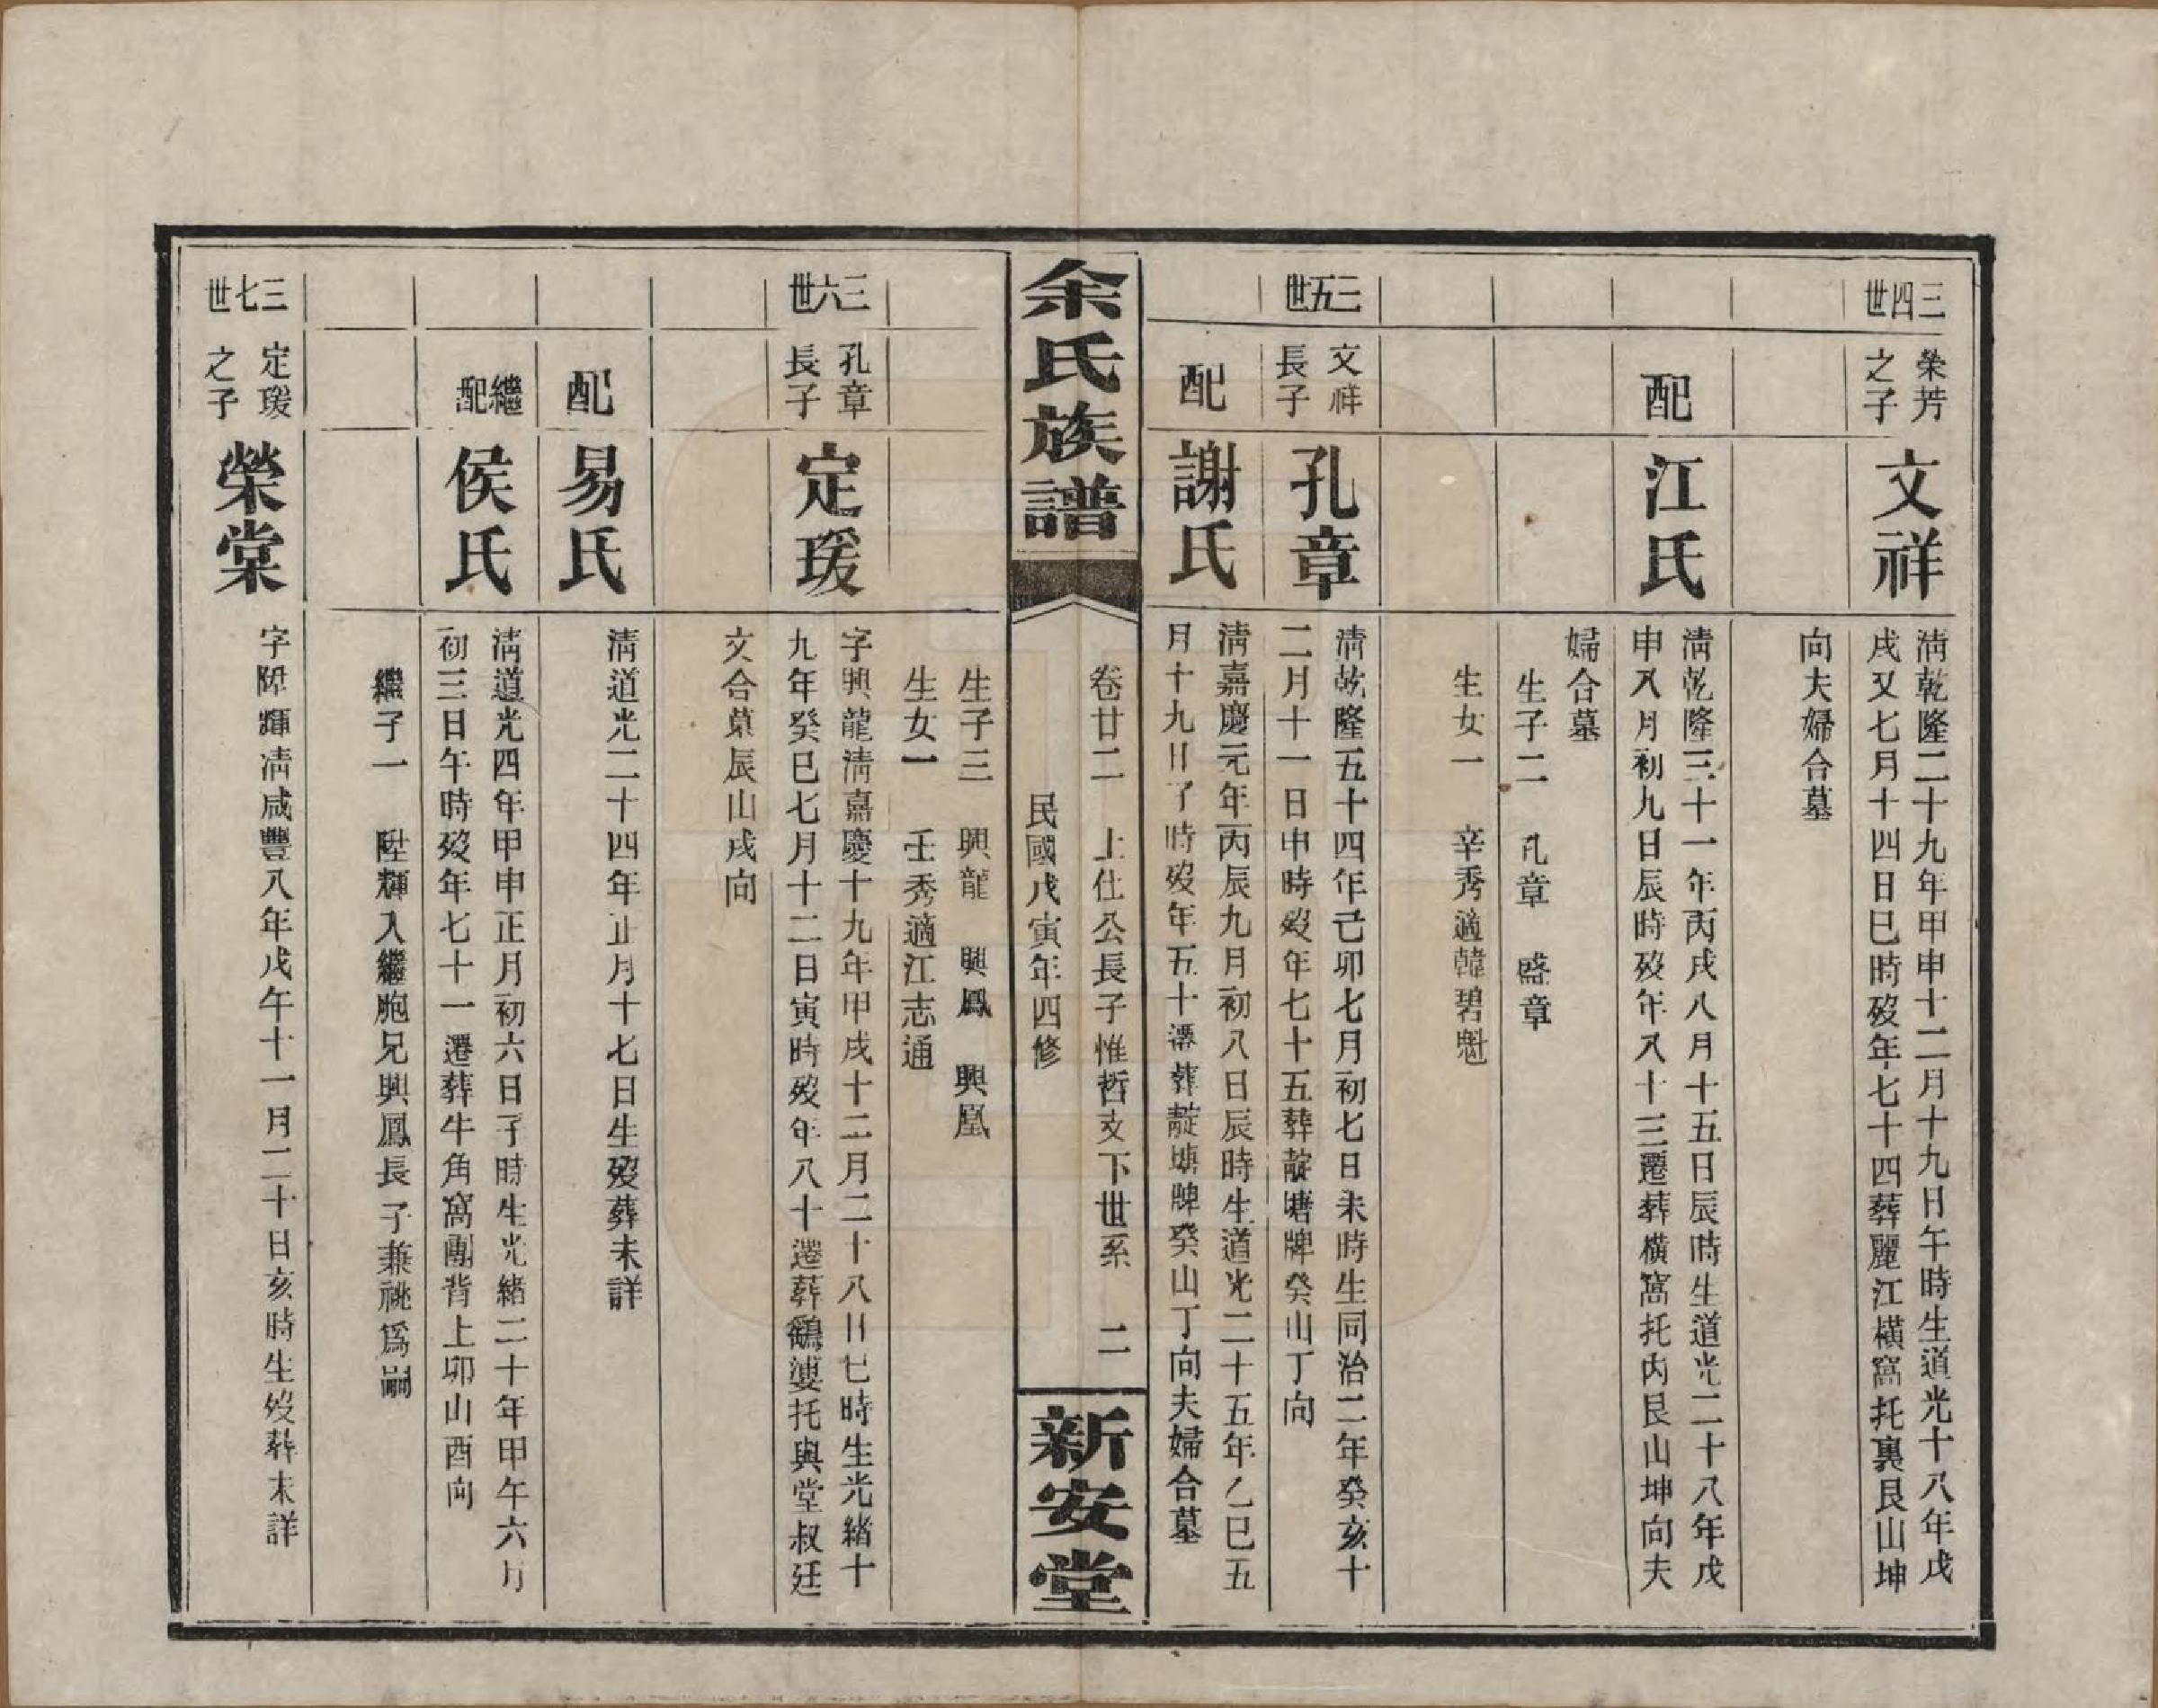 三四世
榮芳之子
文祥
淸乾隆二十九年甲申十二月十九日午時生道光十八年戊
戌又七月十四日巳時歿年七十四葬麗江橫窩托裏艮山坤
向夫婦合墓
配
江氏
淸乾隆三十一年丙戌八月十五日辰時生道光二十八年戊
申八月初九日辰時歿年八十三遷葬橫窩托內艮山坤向夫
婦合墓
生子二 孔章 盛章
生女一 辛秀適韓碧魁
三五世
文祥長子
孔章
淸乾隆五十四年己卯七月初七日未時生同治二年癸亥十
二月十一日申時歿年七十五葬靛塘牌癸山丁向
配
謝氏
淸嘉慶元年丙辰九月初八日辰時生道光二十五年乙巳五
月十九日丁時歿年五十遷葬靛塘牌癸山丁向夫婦合墓
余氏族譜
卷廿二 上仕公長子惟哲支下世系 二
民國戊寅年四修
新安堂
生子三 興龍 興鳳 興凰
生女一 壬秀適江志通
三六世
孔章長子
定瑗
字興龍淸嘉慶十九年甲戌十二月二十八日巳時生光緒十
九年癸巳七月十二日寅時歿年八十遷葬鷂婆托與堂叔廷
文合墓辰山戌向
配
易氏
淸道光二十四年正月十七日生歿葬未詳
繼配
侯氏
淸道光四年甲申正月初六日子時生光緒二十年甲午六月
初三日午時歿年七十一遷葬牛角窩團背上卯山酉向
繼子一 陞輝入繼胞兄興鳳長子兼祧爲嗣
三七世
定瑗之子
榮棠
字陞輝淸咸豐八年戊午十一月二十日亥時生歿葬未詳